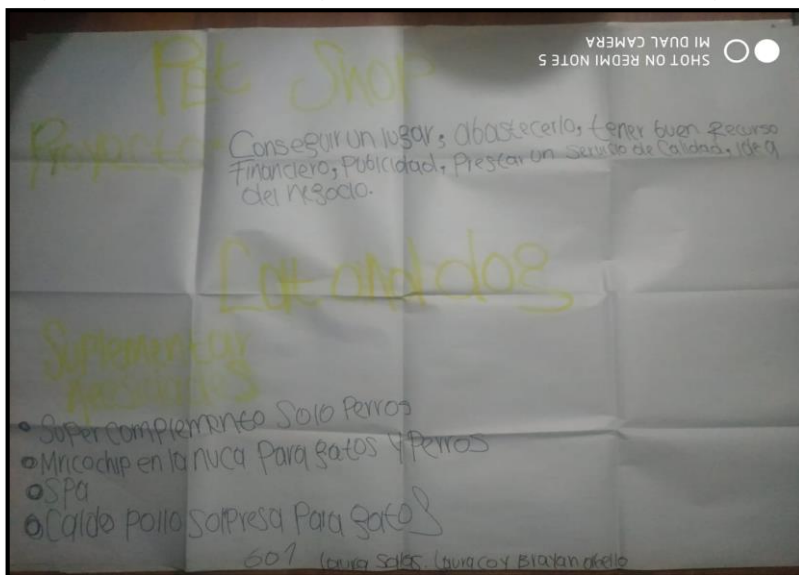 SHOT ON REDMI NOTE 5
MI DUAL CAMERA
Pet Shop
Proyecto: Conseguir un lugar, abastecerlo, tener buen Recurso
Financiero, Publicidad, Prestar un Servicio de Calidad, idea
del negocio.
Cat and dog
Suplementar
nesidades
Super complemento Solo Perros
Mricochip en la nuca Para gatos y Perros
SPA
Caldo pollo Sorpresa Para gatos
601 Laura Salas. Laura coy Brayan